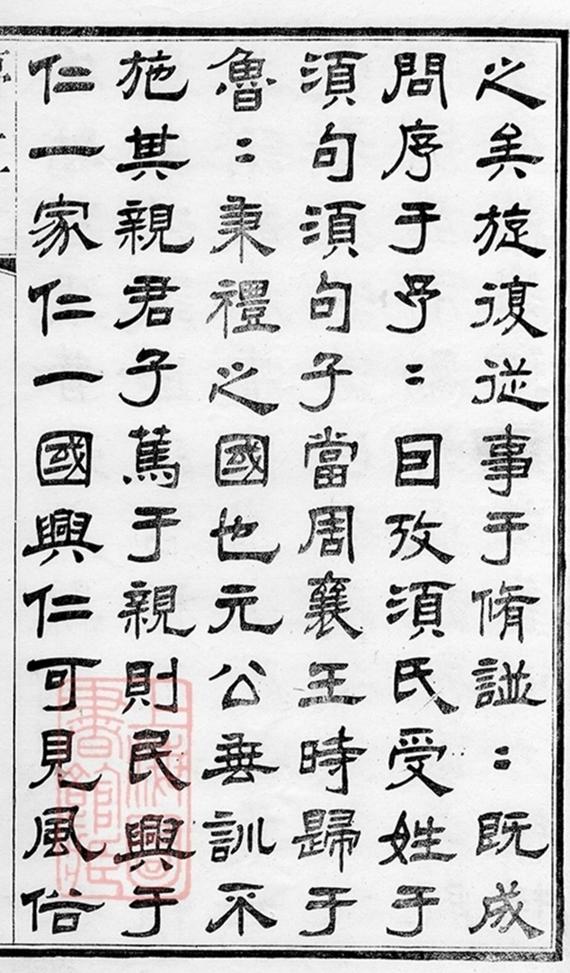 之矣旋復從事于脩譜〻既成
問序于予〻曰攷須氏受姓于
須句須句子當周襄王時歸于
魯〻秉禮之國也元公垂訓不
施其親君子篤于親則民興于
仁一家仁一國興仁可見風俗